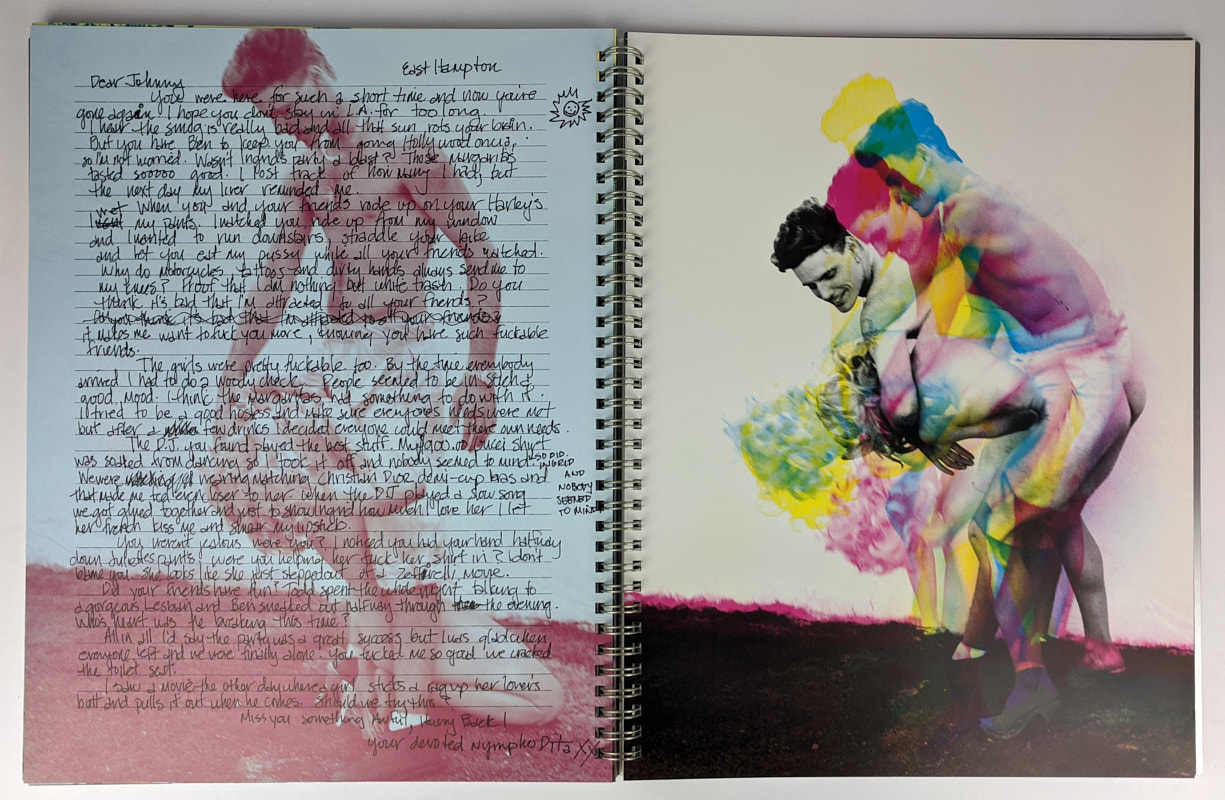 East Hampton
Dear Johnny
Your were here for such a short time and now you're
gone again. I hope you don't stay in L.A. for too long
I hear the smog is really bad and all that sun rots your brain.
But you have Ben to keep you from going Hollywood on us,
so I'm not worried. Wasn't Ingrid's party a blast? Those Margaritas
tasted sooooo good. I lost track of how many I had, but
the next day my liver reminded me.
When you and your friends rode up on your Harley's
I wet my pants. I watched you ride up from my window
and I wanted to run downstairs straddle your bike
and let you eat my pussy while all your friends watched.
Why do Motorcycles, tattoos and dirty hands always send me to
my knees? Proof that I am nothing but white trash. Do you
think it's bad that I'm attracted to all your friends?
Do you think it's bad that I'm attracted to all your friends?
it makes me want to fuck you more, knowing you have such fuckable
friends.
The girls were pretty fuckable too. By the time everybody
arrived I had to do a woody check. People seemed to be in such a
good mood. I think the Margaritas had something to do with it.
I tried to be a good hostess and make sure everyones needs were met
but after a few drinks I decided everyone could meet there own needs.
The D.J. you found played the best stuff. My $900.00 Gucci shirt
was soaked from dancing so I took it off and nobody seemed to mind
SO DID
INGRID
AND
NOBODY
SEEMED
TO MIND
We were wearing matching Christian Dior demi-cup bras and
that made me feel even closer to her. When the DJ played a slow song
we got glued together and just to show Ingrid how much I love her I let
her french kiss me and smear my lipstick.
You weren't jealous were you? I noticed you had your hand halfway
down Juliette's pants, were you helping her tuck her shirt in? I don't
blame you. She looks like she just stepped out of a Zeffirelli movie.
Did your friends have fun? Todd spent the whole night talking to
a gorgeous Lesbian and Ben sneaked out halfway through the evening.
Who's heart was he breaking this time?
All in all I'd say the party was a great success but I was glad when
everyone left and we were finally alone. You fucked me so good we cracked
the toilet seat.
I saw a movie the other day where a girl sticks a rag up her lover's
butt and pulls it out when he comes. Should we try this?
Miss you something Awful, Hurry Back!
your devoted nympho Dita XX